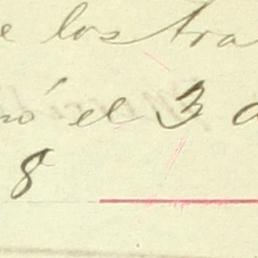 e los tra
ó el 3 d
8